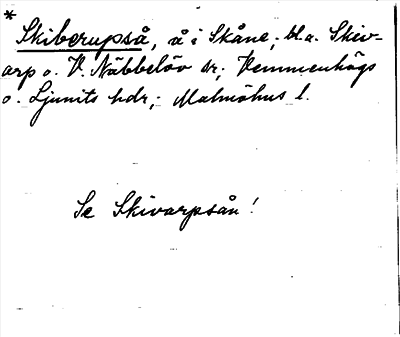 * Skiberupså, å i Skåne; bl.a. Skiv-
arp o. V. Näbbelöv sr; Vemmenhögs
o. Ljunits hdr; Malmöhus l.
Se Skivarpsån!